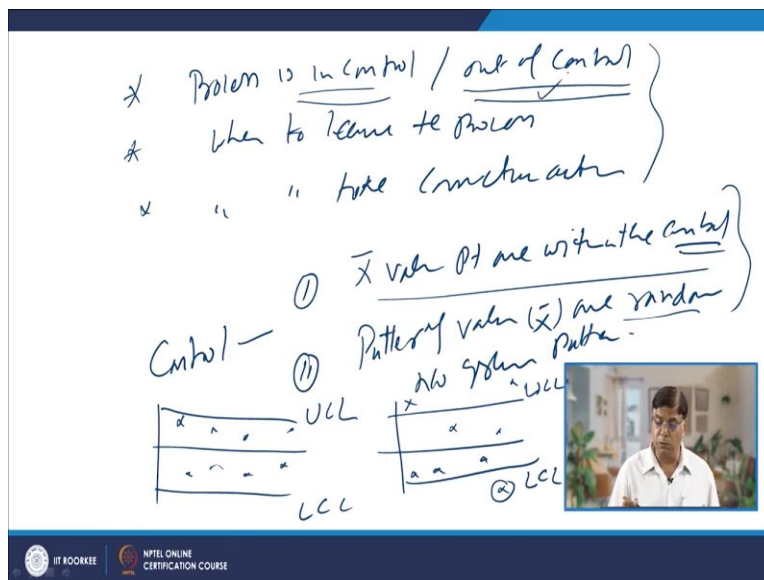 * Process is in control / out of control
* when to leave the process
* " " take corrective action
① X̄ value pt are within the control
Control —
② Pattern of value (X̄) are random
no pattern.
UCL
LCL
UCL
LCL
IIT ROORKEE
NPTEL ONLINE
CERTIFICATION COURSE